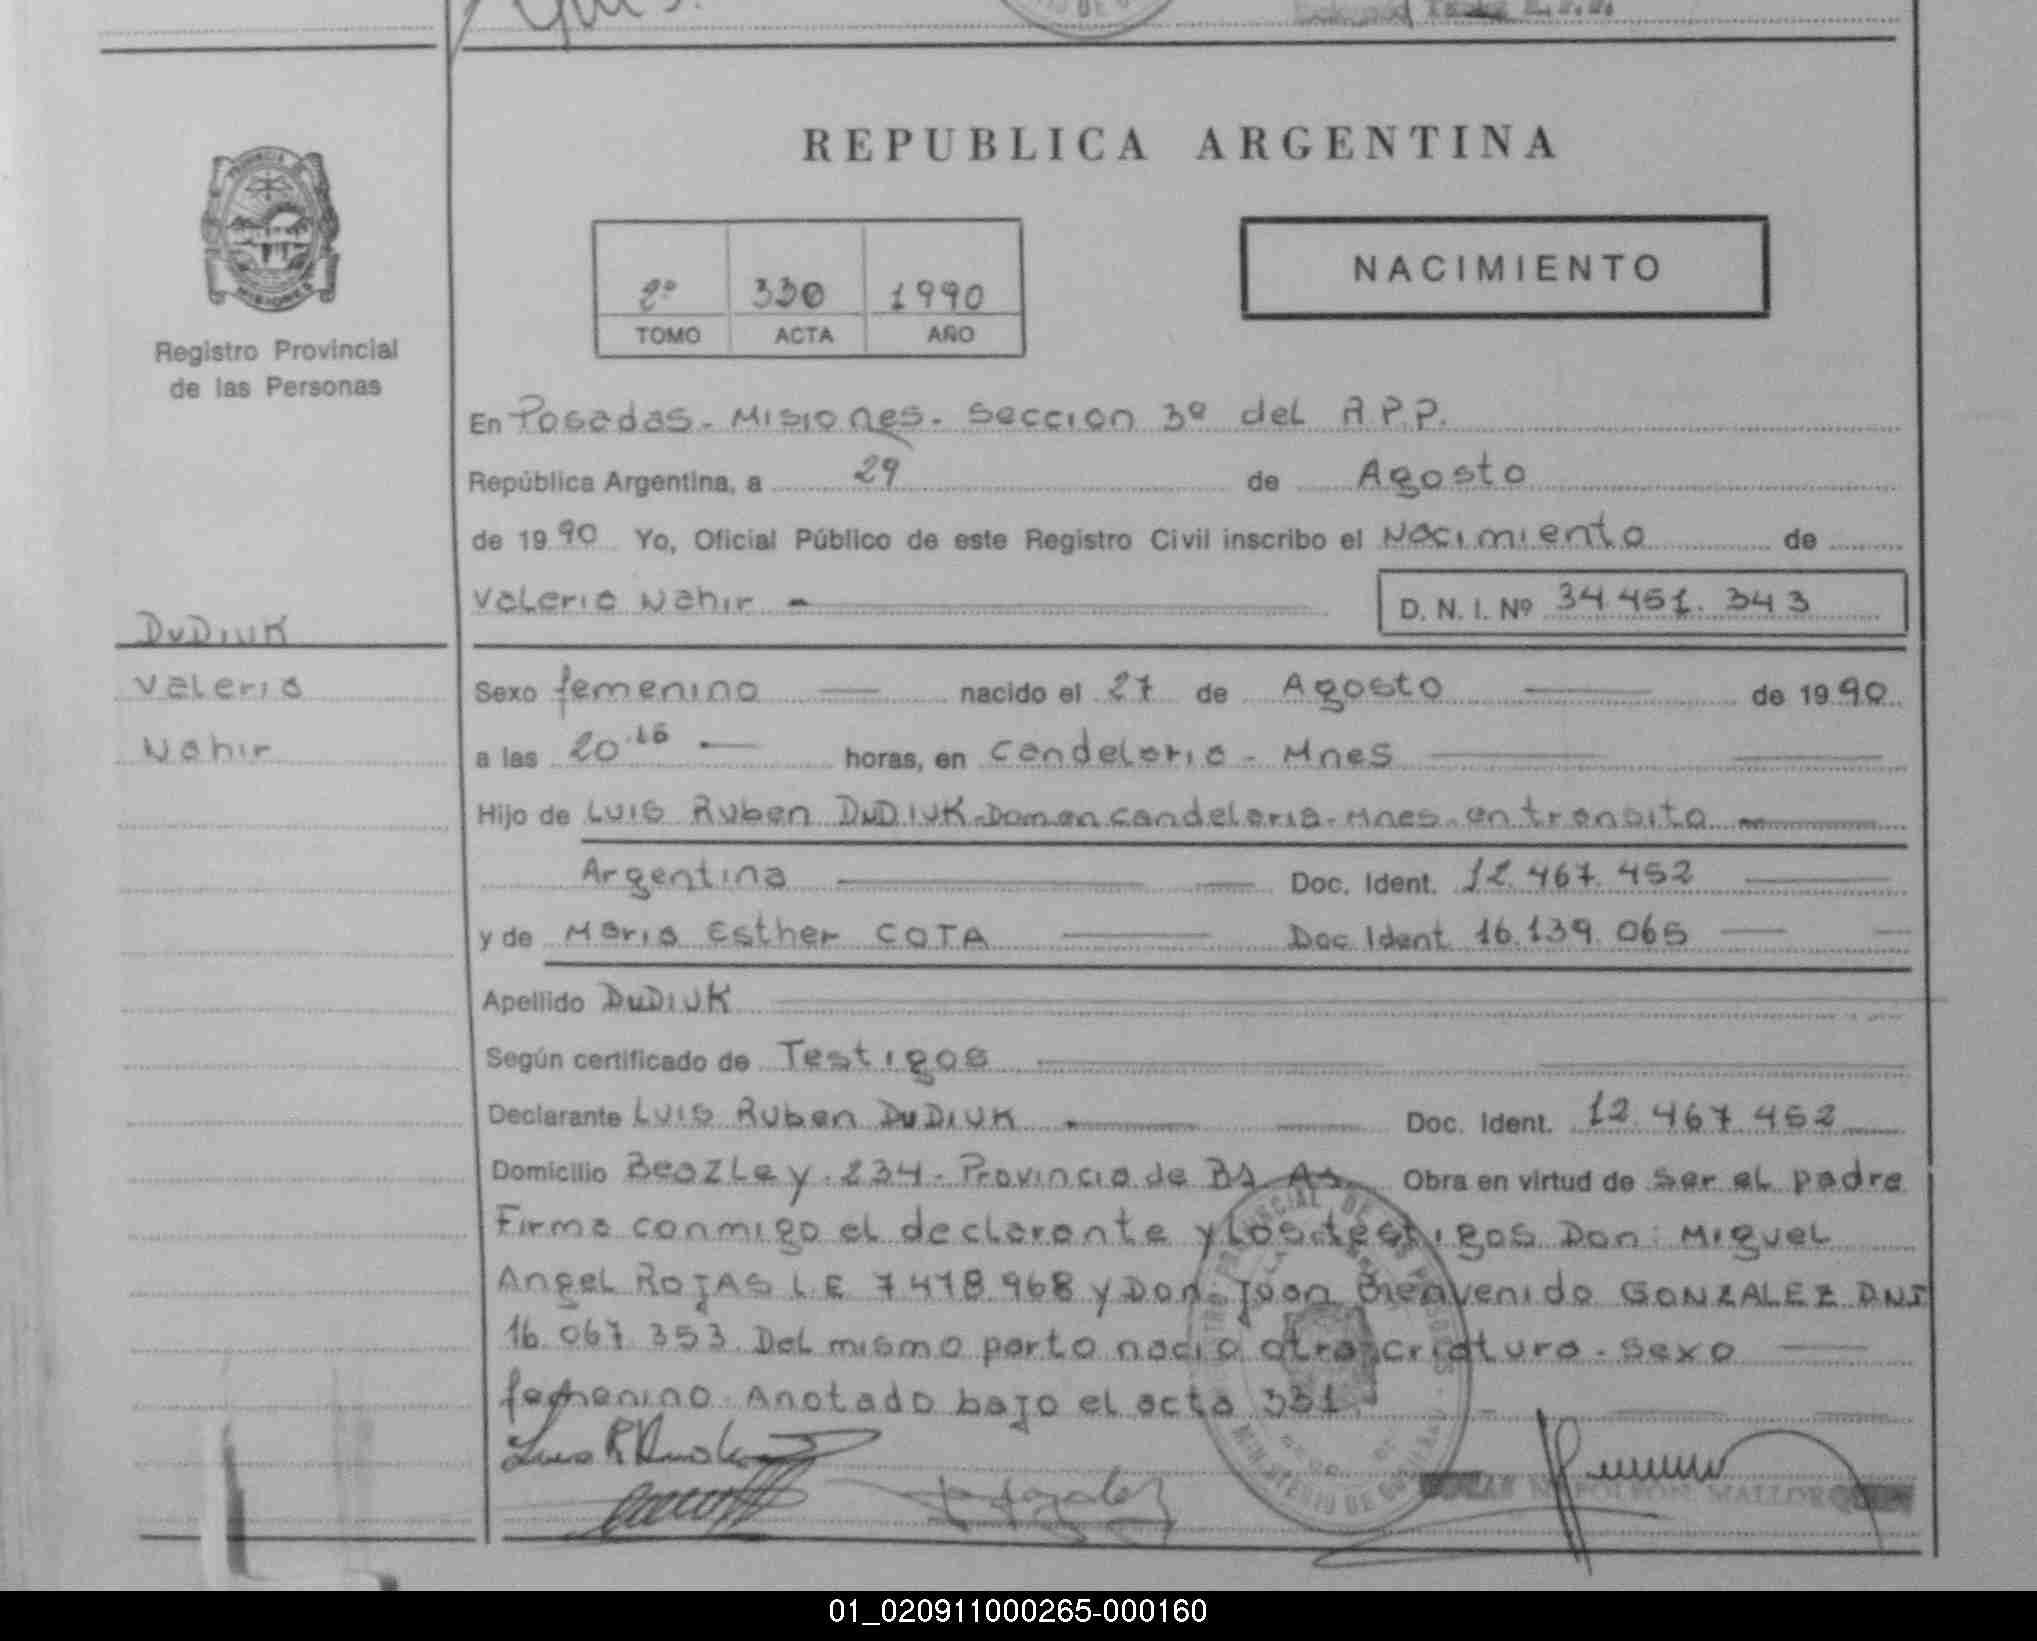 REPUBLICA ARGENTINA
PROVINCIA DE
MISIONES
Registro Provincial
de las Personas
2º 330 1990
TOMO ACTA AÑO
NACIMIENTO
En Posadas - Misiones - Seccion 3º del R.P.P.
República Argentina, a 29 de Agosto
de 1990 Yo, Oficial Público de este Registro Civil inscribo el Nacimiento de
Valeria Nahir - D. N. I. Nº 34.451.343
DUDIUK
Valeria
Nahir
Sexo femenino nacido el 27 de Agosto de 1990
a las 20.16 horas, en Candelaria - Mnes
Hijo de Luis Ruben DUDIUK - Dom en Candelaria - Mnes - en transito
Argentina Doc. Ident. 12.467.452
y de Maria Esther COTA Doc. Ident. 16.139.065
Apellido DUDIUK
Según certificado de Testigos
Declarante Luis Ruben DUDIUK Doc. Ident. 12.467.452
Domicilio Beazley 234 - Provincia de Bs As. Obra en virtud de ser el padre
Firma conmigo el declarante y los testigos Don: Miguel
Angel ROJAS L E 7.478.968 y Don Juan Bienvenido GONZALEZ DNI
16.067.353. Del mismo parto nacio otra criatura - sexo
femenino. Anotado bajo el acta 331.
NAPOLEON MALLORQUIN
01_020911000265-000160